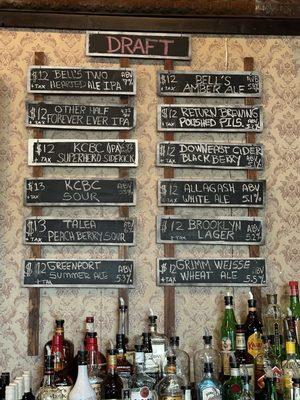 DRAFT
$12 BELL'S TWO ABV
+TAX HEARTED ALE IPA 7%
$12 OTHER HALF
+TAX FOREVER EVER IPA
$12 KCBC IPA
+TAX SUPERHERO SIDEKICK
$13 KCBC
+TAX SOUR
$13 TALEA
+TAX PEACH BERRY SOUR
$12 GREENPORT ABV
+TAX SUMMER ALE 5.3%
$12 BELL'S ABV
+TAX AMBER ALE
$12 RETURN BREWING
+TAX POLISHED PILS
$12 DOWNEAST CIDER
+TAX BLACK BERRY
$12 ALLAGASH ABV
+TAX WHITE ALE 5.1%
$12 BROOKLYN ABV
+TAX LAGER 5.2%
$12 GRIMM WEISSE ABV
+TAX WHEAT ALE